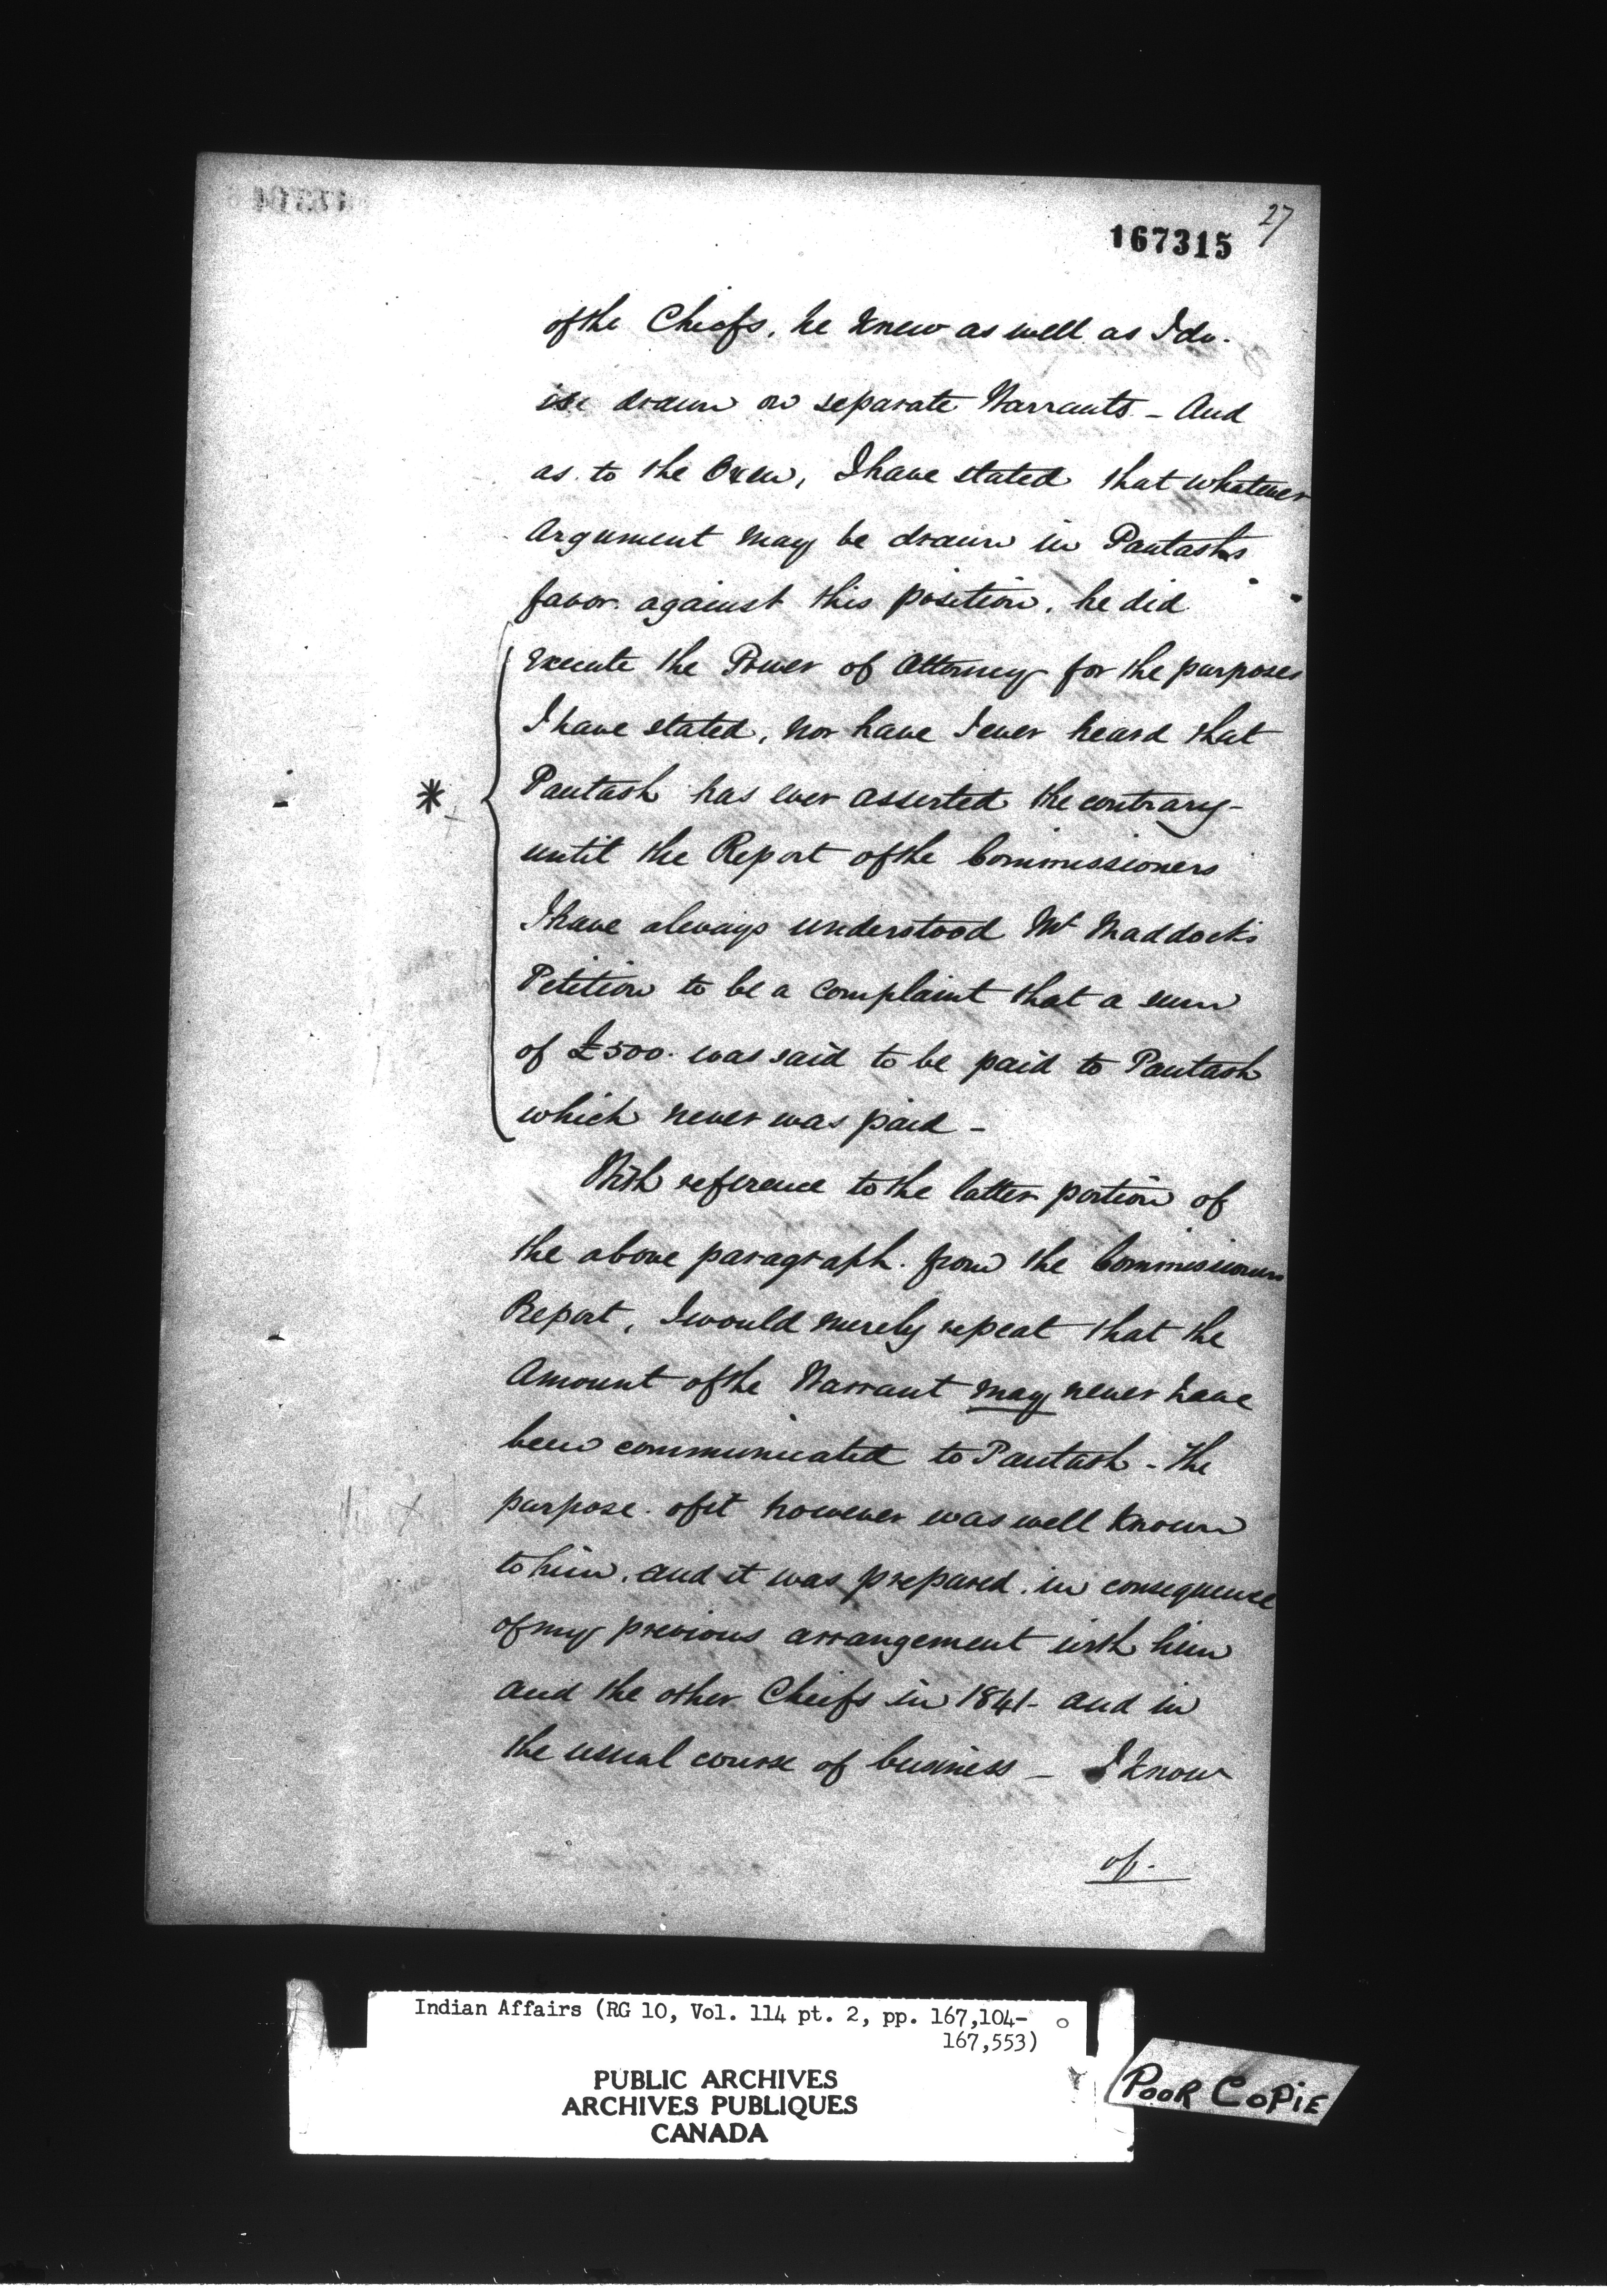 27
167315
of the Chiefs, he knew as well as I do.
is drawn on separate Warrants - And
as to the Oxen, I have stated that whatever
Argument may be drawn in Pautash's
favor against this position, he did
execute the Power of Attorney for the purposes
I have stated, nor have I ever heard that
* Pautash has ever asserted the contrary -
until the Report of the Commissioners
I have always understood Mr Maddock's
Petition to be a complaint that a sum
of £500. was said to be paid to Pautash
which never was paid -
With reference to the latter portion of
the above paragraph. from the Commissioners
Report, I would merely repeat that the
Amount of the Warrant may never have
been communicated to Pautash - The
purpose of it however was well known
to him, and it was prepared in consequence
of my previous arrangement with him
and the other Chiefs in 1841 - and in
the usual course of business - I know
of.
Indian Affairs (RG 10, Vol. 114 pt. 2, pp. 167,104-
167,553)
PUBLIC ARCHIVES
ARCHIVES PUBLIQUES
CANADA
POOR COPiE